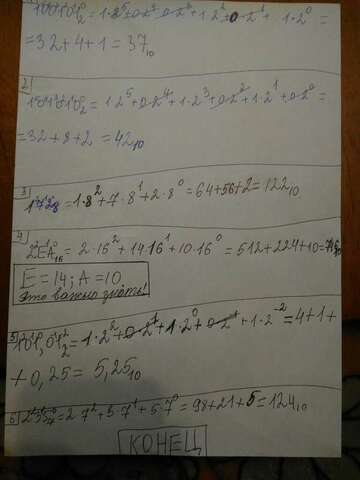 100101₂ = 1·2⁵+0·2⁴+0·2³+1·2²+0·2¹+1·2⁰ =
= 32+4+1 = 37₁₀
2) 101010₂ = 1·2⁵+0·2⁴+1·2³+0·2²+1·2¹+0·2⁰ =
= 32+8+2 = 42₁₀
3) 172₈ = 1·8²+7·8¹+2·8⁰ = 64+56+2 = 122₁₀
4) 2EA₁₆ = 2·16²+14·16¹+10·16⁰ = 512+224+10 = 746₁₀
E = 14; A = 10
Это важно знать!
5) 101,01₂ = 1·2²+0·2¹+1·2⁰+0·2⁻¹+1·2⁻² = 4+1+
+ 0,25 = 5,25₁₀
6) = 2·7²+ ·7¹+5·7⁰ = 98+21+5 = 124₁₀
КОНЕЦ